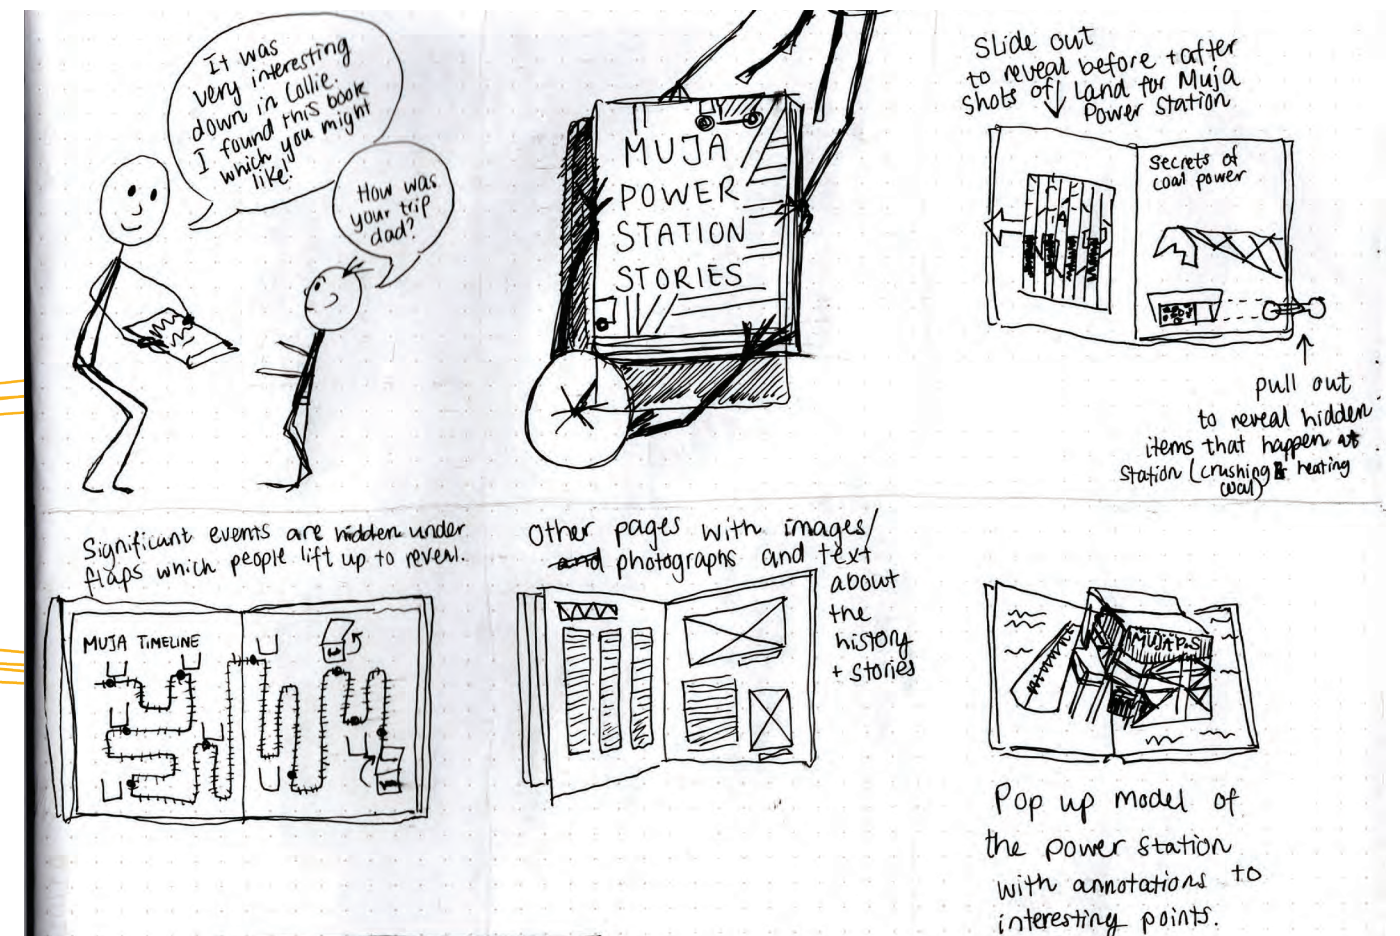 It was
very interesting
down in Collie.
I found this book
which you might
like!
How was
your trip
dad?
MUJA
POWER
STATION
STORIES
Slide out
to reveal before + after
shots of Land for Muja
Power Station
Secrets of
coal power
pull out
to reveal hidden
items that happen at
station (crushing & heating
coal)
Significant events are hidden under
flaps which people lift up to reveal.
MUJA TIMELINE
Other pages with images/
and photographs and text
about
the
history
+ stories
MUJA P.S
Pop up model of
the power station
with annotations to
interesting points.